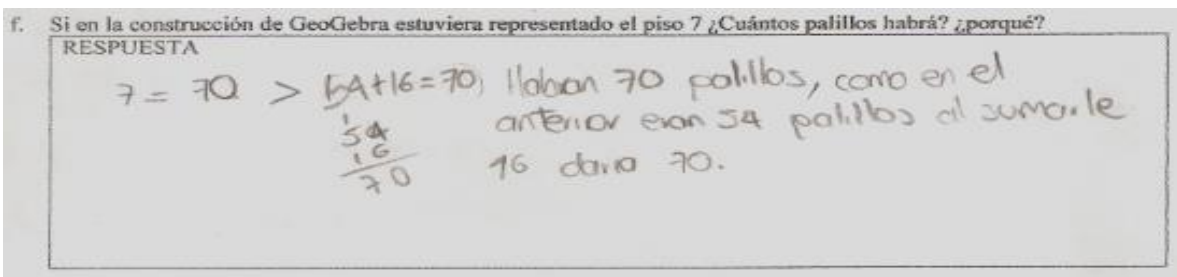 f. Si en la construcción de GeoGebra estuviera representado el piso 7 ¿Cuántos palillos habrá? ¿porqué?
RESPUESTA
7 = 70 > 54+16=70, Habian 70 palillos, como en el
anterior eran 54 palillos al sumarle
16 daria 70.
54
16
70